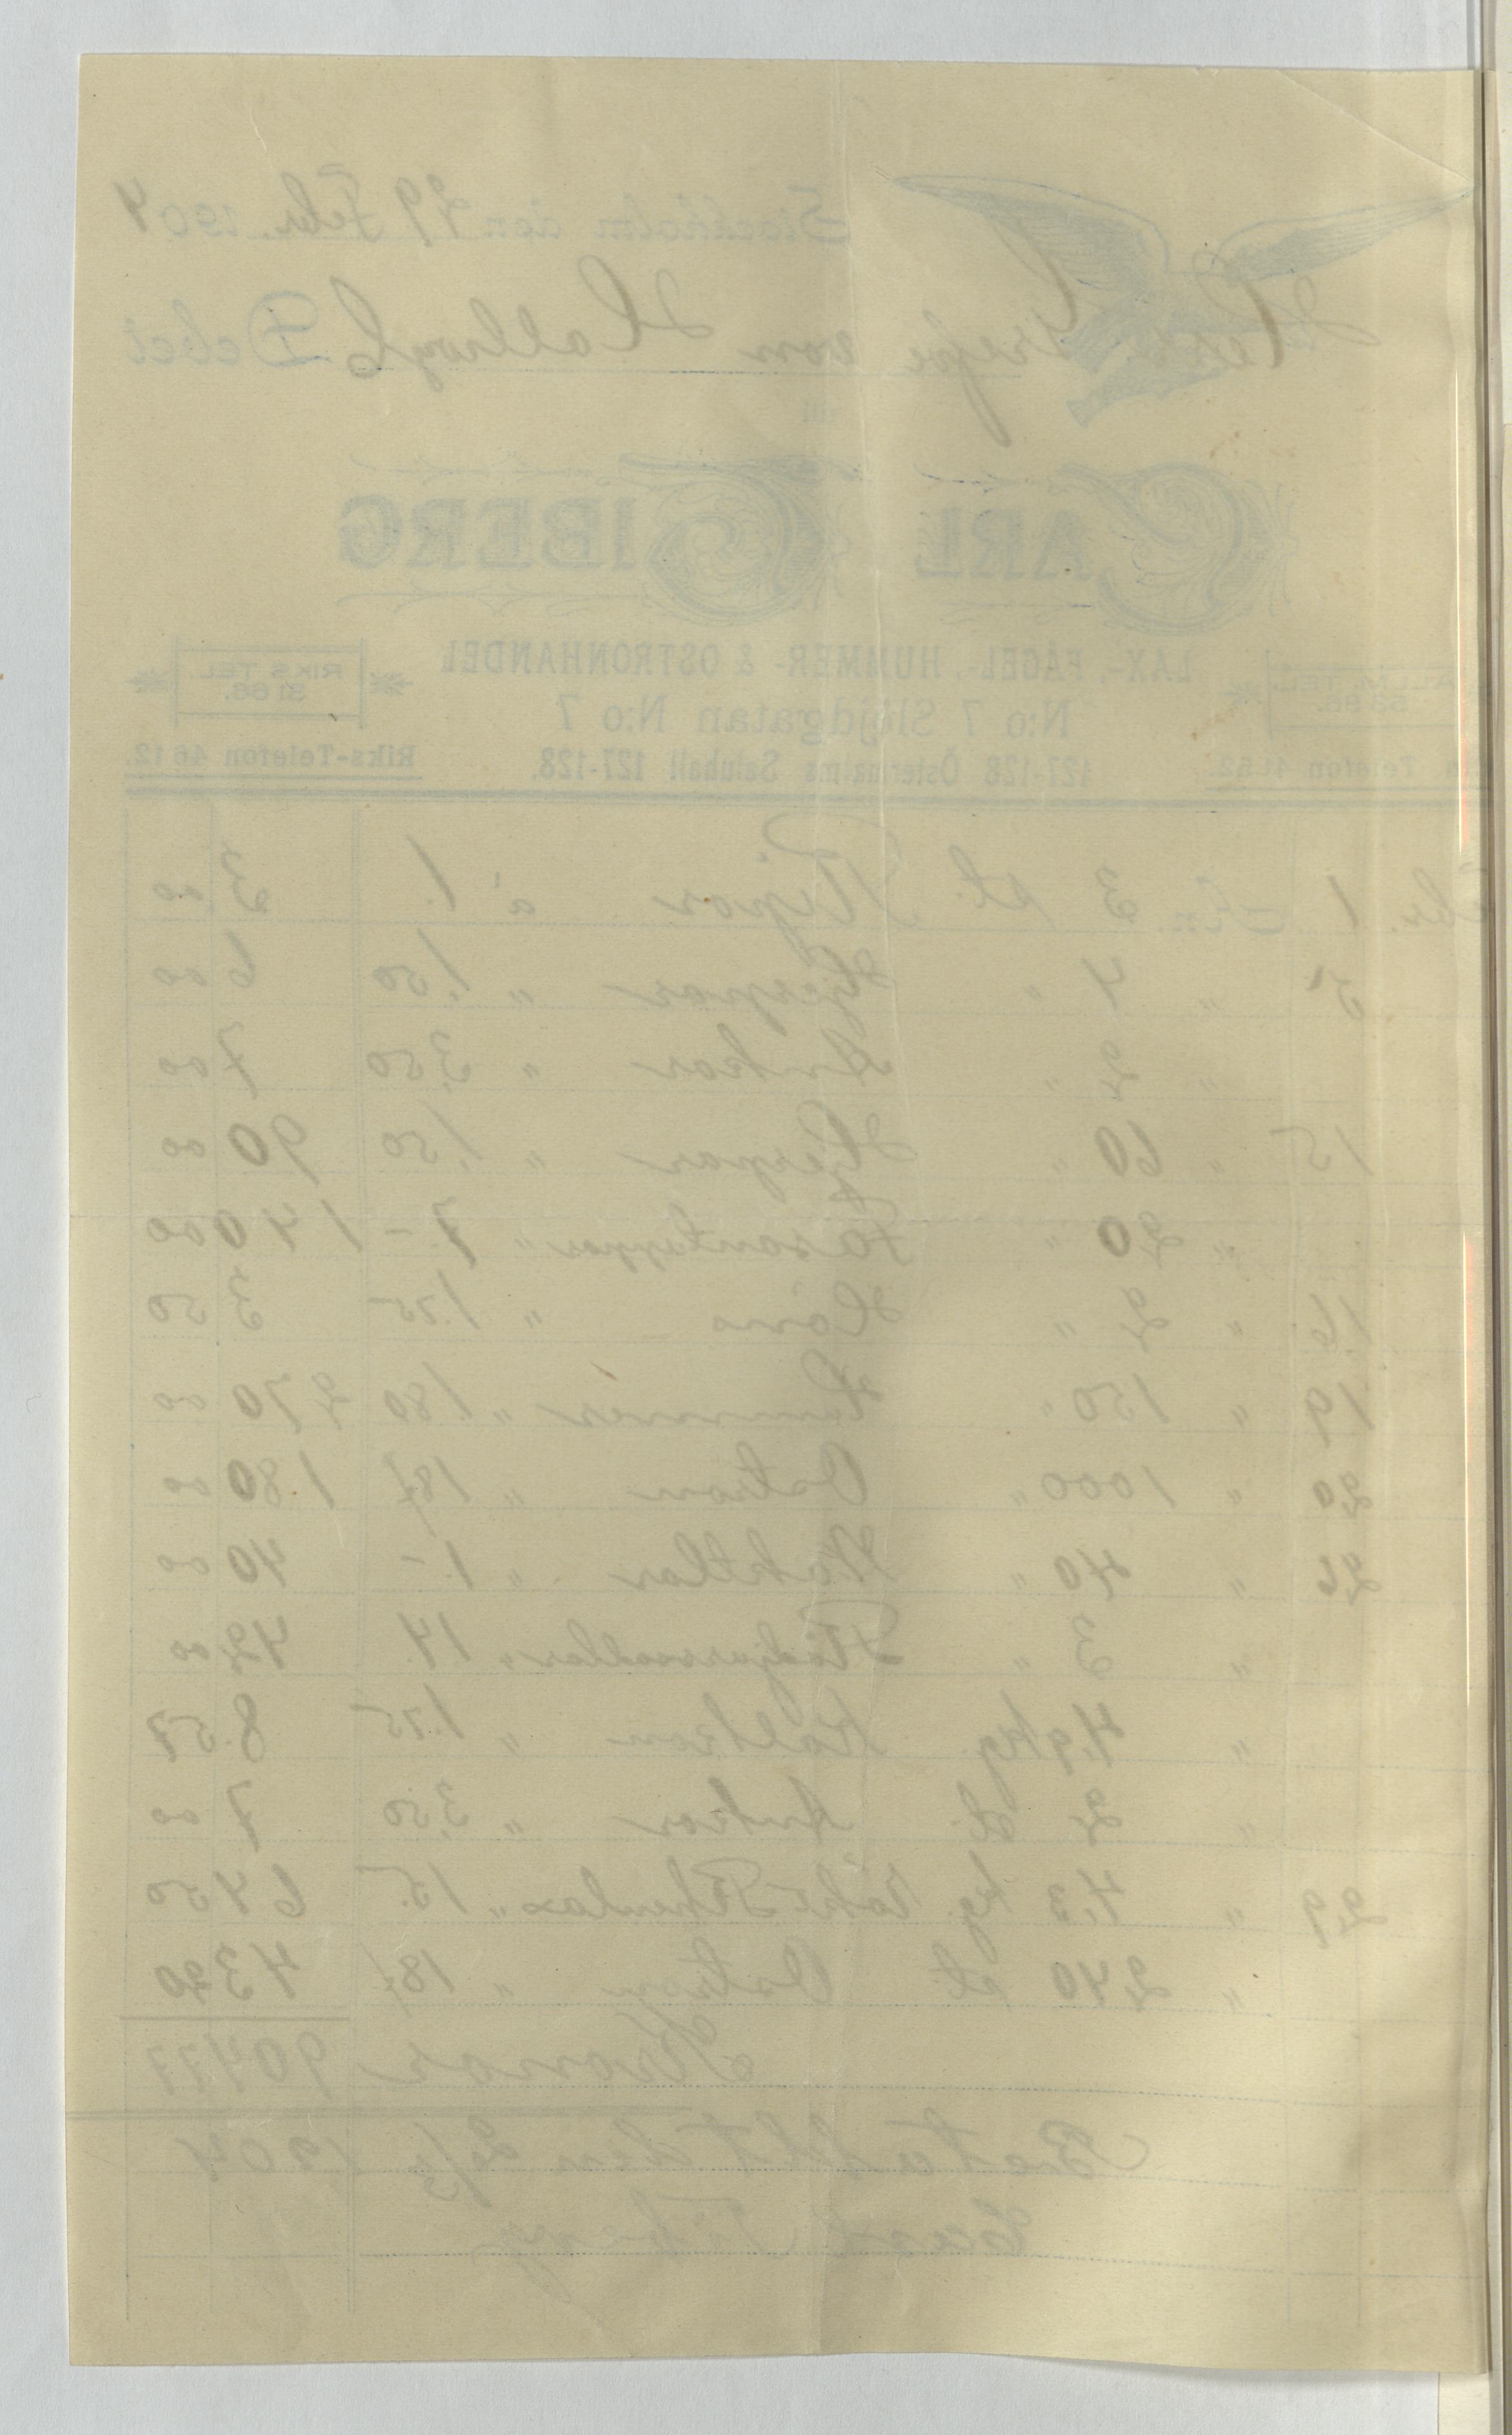 Stockholm den 29 Febr. 1904
Herr Grefve von Hallwyl Debet
till
CARL TIBERG
LAX-, FÅGEL-, HUMMER- & OSTRONHANDEL
ALLM. TEL.
RIKS TEL.
51 66.
N:o 7 Slöjdgatan N:o 7
127-128 Östermalms Saluhall 127-128.
Telefon 11 52.
Riks-Telefon 46 12.
Febr. 1 3 st. Ripor à 1. 3 00
5 " 4 " Hjerpar " 1,50 6 00
" 2 " Ankor " 3,50 7 00
15 " 60 " Hjerpar " 1,50 90 00
" 20 " Fasantuppar " 7.- 140 00
16 " 2 " Höns " 1.75 3 50
19 " 150 " Hummer " 1.80 270 00
20 " 1000 " Ostron " 18/ 180 00
26 " 40 " Waktlar " 1.- 40 00
" 3 " 14. 42 00
" 4,9 kg. Kalkon " 1.75 8.57
" 2 st. Ankor " 3,50 7 00
29 " 4,3 kg. Rökt Rhenlax " 15. 64 50
" 240 st. Ostron " 18/ 43 20
Kronor 904 77
Betaldt den 2/3 1904
Carl Tiberg